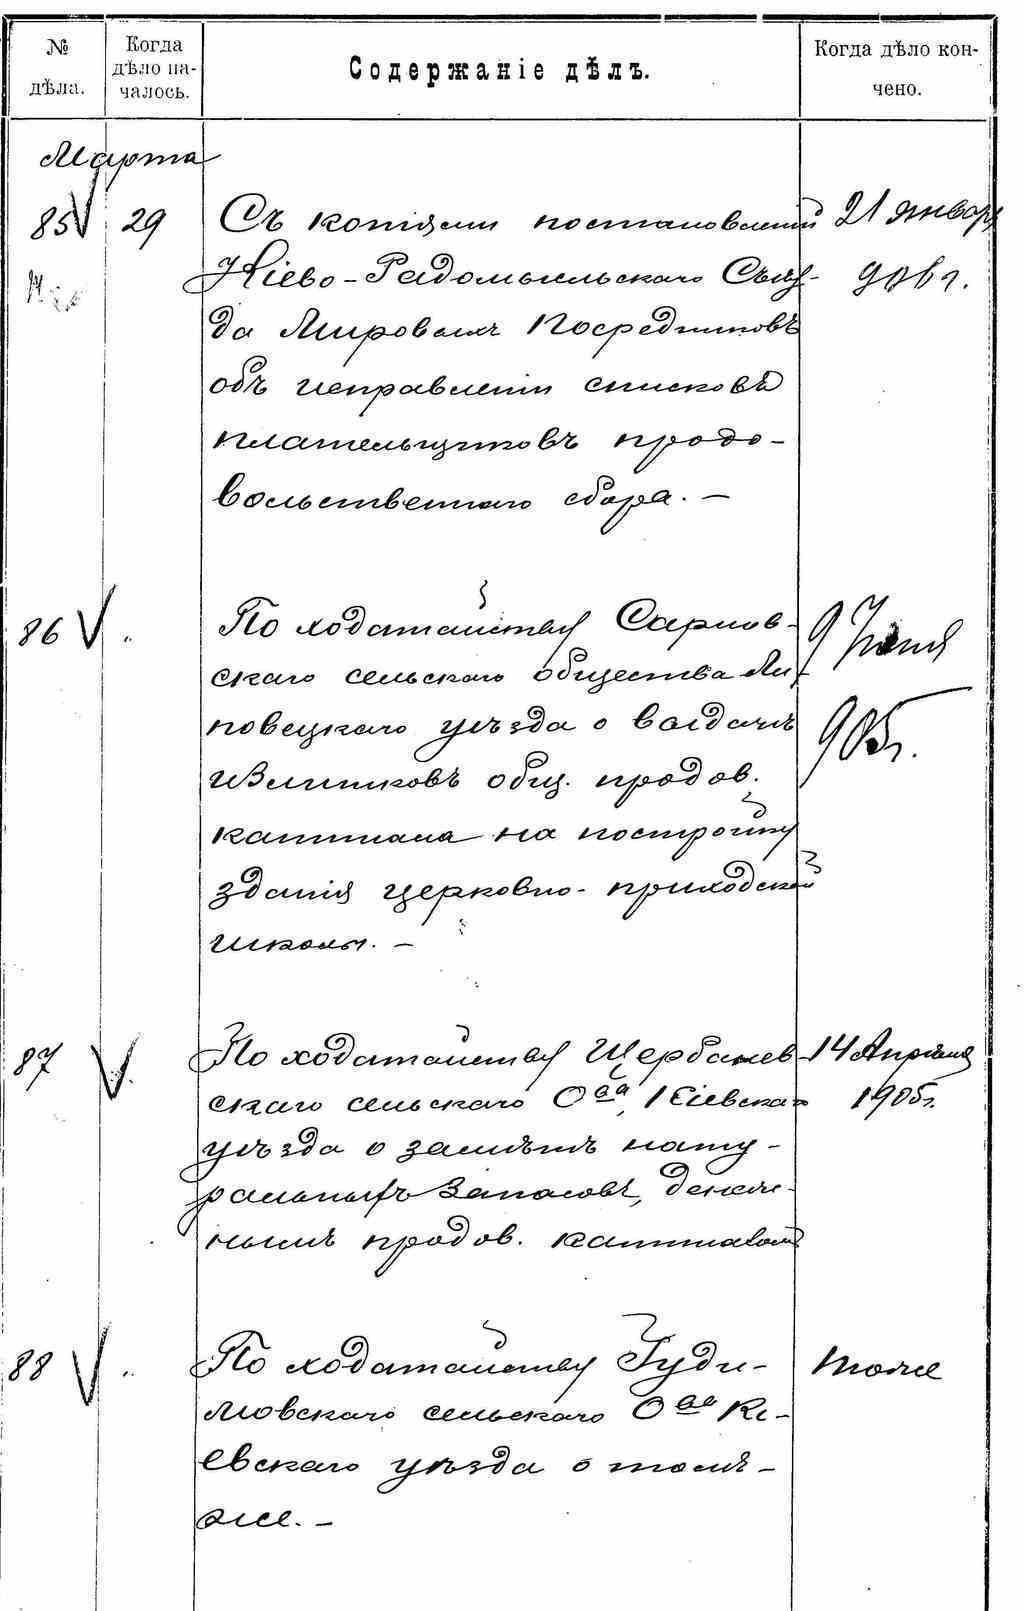 № дѣла.
Когда дѣло началось.
Содержаніе дѣлъ.
Когда дѣло кончено.
Марта
85 V 29 Съ копіями постановленій 21 января
Кіево-Радомысльскаго Съѣз- 906 г.
да Мировыхъ Посредниковъ
объ исправленіи списковъ
плательщиковъ продо-
вольственнаго сбора. -
86 V " По ходатайству Сарнов- 9 Іюня
скаго сельскаго общества Ли-
повецкаго уѣзда о выдачѣ 905 г.
излишковъ общ. продов.
капитала на постройку
зданія церковно-приходской
школы. -
87 V. По ходатайству Щербанев- 14 Апрѣля
скаго сельскаго О-ва, Кіевска- 1905 г.
уѣзда о замѣнѣ нату-
ральныхъ запасовъ, денеж-
нымъ продов. капиталомъ
88 V " По ходатайству Гуди- тоже
мовскаго сельскаго О-ва Кі-
евскаго уѣзда о томъ-
же. -